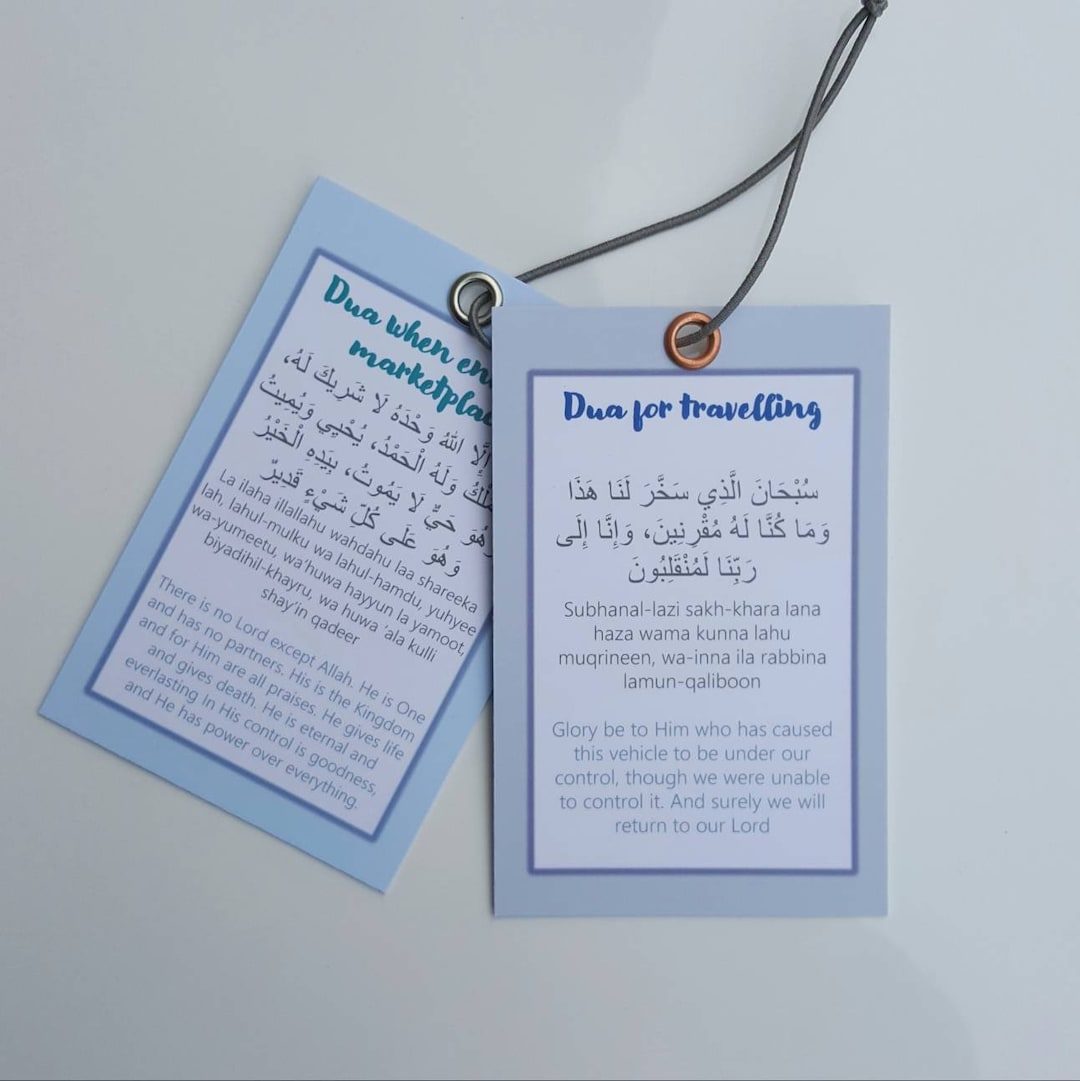 Dua when
marketplac
إِلَّا اللهُ وَحْدَهُ لَا شَرِيكَ لَهُ،
وَلَهُ الْحَمْدُ، يُحْيِي وَيُمِيتُ
وَهُوَ حَيٌّ لَا يَمُوتُ، بِيَدِهِ الْخَيْرُ
وَهُوَ عَلَى كُلِّ شَيْءٍ قَدِيرٌ
La ilaha illallahu wahdahu laa shareeka
lah, lahul-mulku wa lahul-hamdu, yuhyee
wa-yumeetu, wa'huwa hayyun la yamoot,
biyadihil-khayru, wa huwa 'ala kulli
shay'in qadeer
There is no Lord except Allah. He is One
and has no partners. His is the Kingdom
and for Him are all praises. He gives life
and gives death. He is eternal and
everlasting In His control is goodness,
and He has power over everything.
Dua for travelling
سُبْحَانَ الَّذِي سَخَّرَ لَنَا هَذَا
وَمَا كُنَّا لَهُ مُقْرِنِينَ، وَإِنَّا إِلَى
رَبِّنَا لَمُنْقَلِبُونَ
Subhanal-lazi sakh-khara lana
haza wama kunna lahu
muqrineen, wa-inna ila rabbina
lamun-qaliboon
Glory be to Him who has caused
this vehicle to be under our
control, though we were unable
to control it. And surely we will
return to our Lord